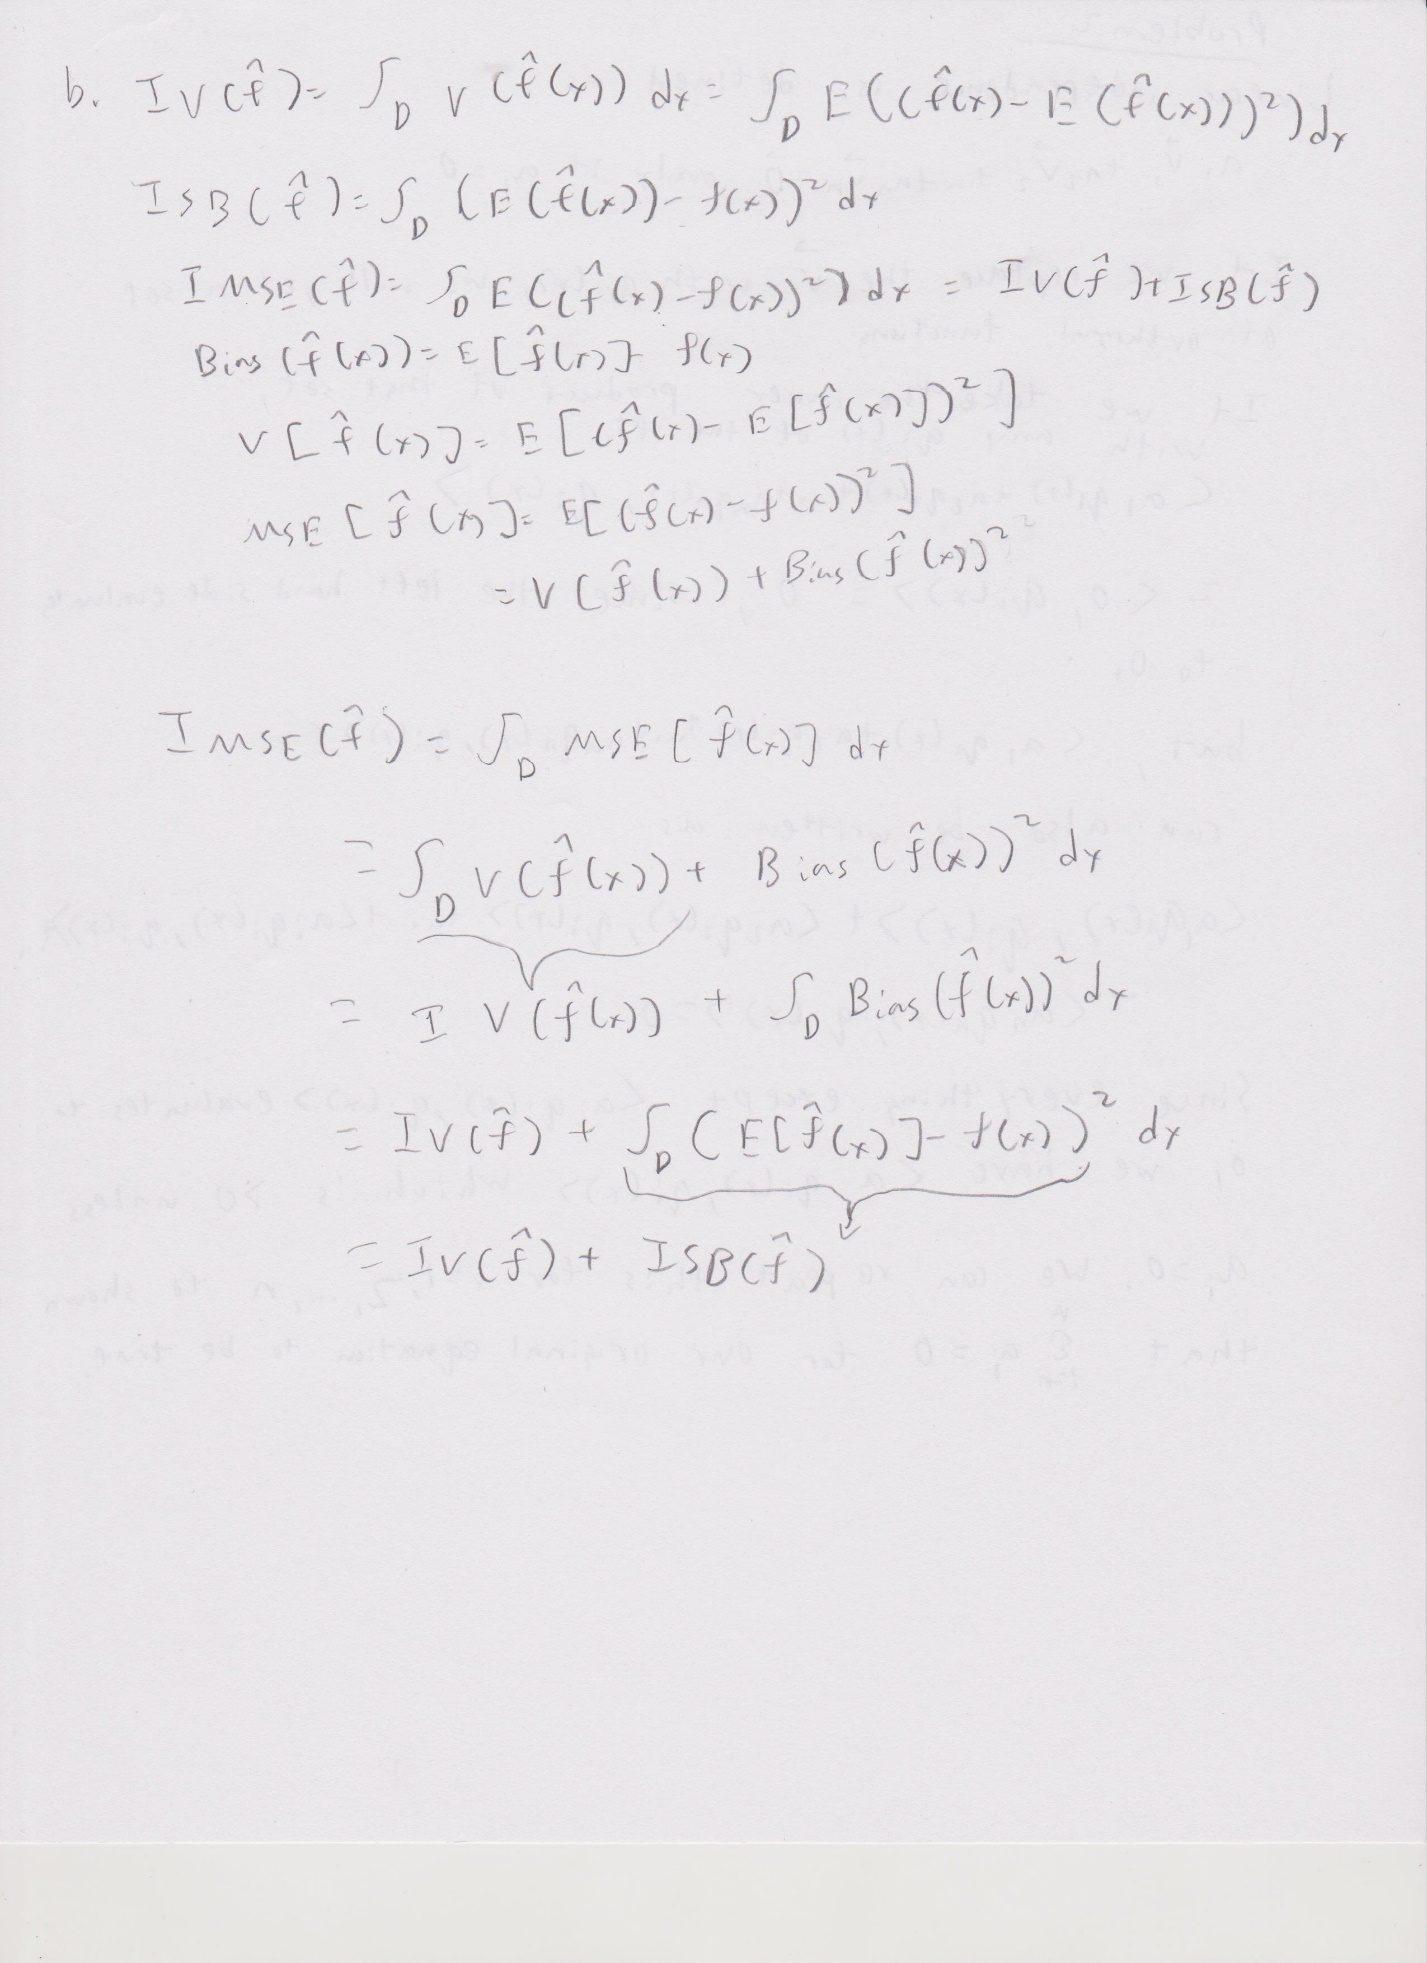 b. IV(f̂) = ∫_D V(f̂(x)) dx = ∫_D E((f̂(x) - E(f̂(x)))²) dx
ISB(f̂) = ∫_D (E(f̂(x)) - f(x))² dx
IMSE(f̂) = ∫_D E((f̂(x) - f(x))²) dx = IV(f̂) + ISB(f̂)
Bias(f̂(x)) = E[f̂(x)] f(x)
V[f̂(x)] = E[(f̂(x) - E[f̂(x)])²]
MSE[f̂(x)] = E[(f̂(x) - f(x))²]
= V(f̂(x)) + Bias(f̂(x))²
IMSE(f̂) = ∫_D MSE[f̂(x)] dx
= ∫_D V(f̂(x)) + Bias(f̂(x))² dx
= IV(f̂(x)) + ∫_D Bias(f̂(x))² dx
= IV(f̂) + ∫_D (E[f̂(x)] - f(x))² dx
= IV(f̂) + ISB(f̂)